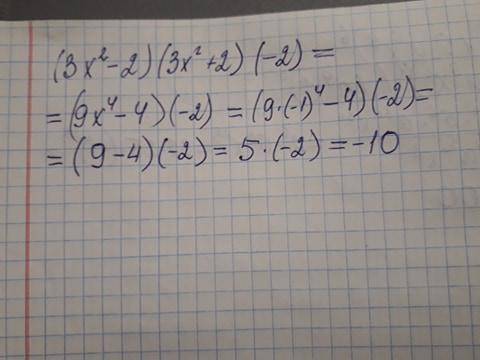 (3x²-2)(3x²+2)(-2)=
=(9x⁴-4)(-2)=(9·(-1)⁴-4)(-2)=
=(9-4)(-2)=5·(-2)=-10